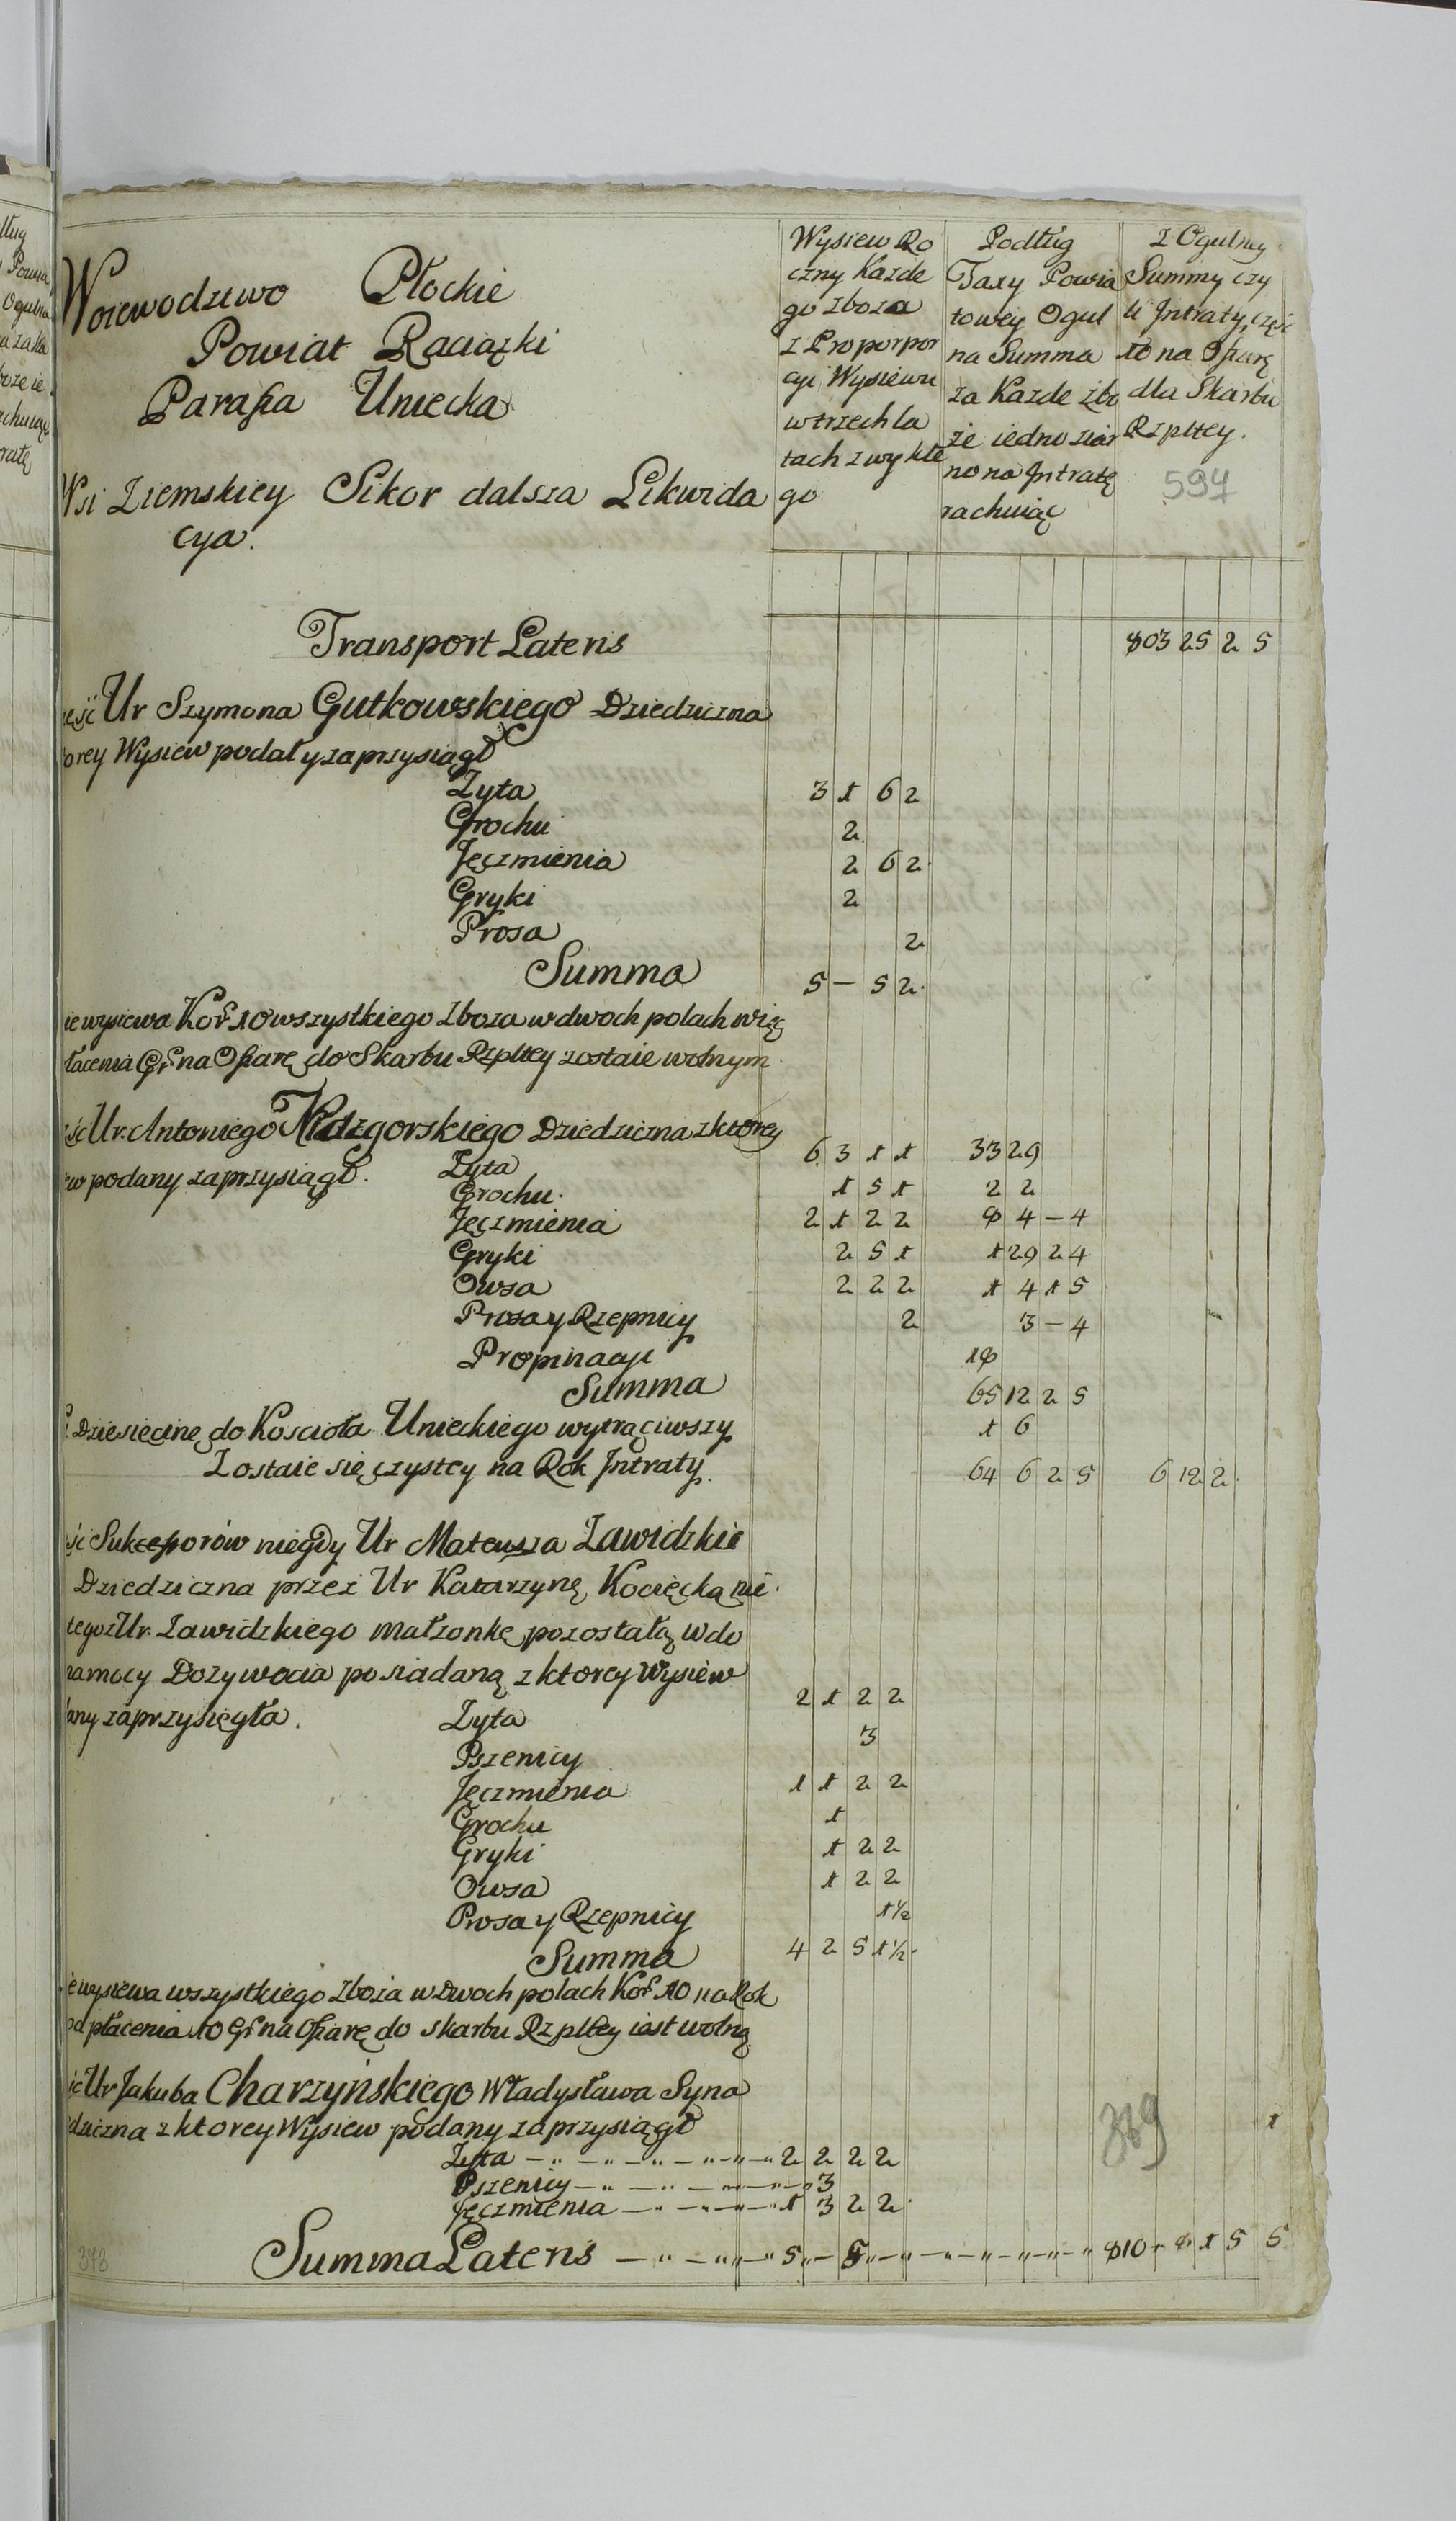 Woiewodztwo Płockie
Powiat Raciązki
Parafia Uniecka
Wsi Ziemskiey Sikor dalsza Likwida
cya.
Wysiew Ro
czny Kazde
go zboza
z Proporpor
cyi Wysiewu
w trzech la
tach zwykłe
go
Podług
Taxy Powia
towey Ogul
na Summa
za Kazde zbo
że iedno ziar
no na Jntratę
rachuiąc
Z Ogulney
Summy czy
li Jntraty, częś
10 na Ofiarę
dla Skarbu
Rzpltey.
597
Transport Lateris 803 25 2 5
Ur Szymona Gutkowskiego Dziedziczna
orey Wysiew podał y zaprzysiągł
Zyta 3 1 6 2
Grochu 2
Jęczmienia 2 6 2
Gryki 2
Prosa 2
Summa 5 - 5 2
ie wysiewa Kor 10 wszystkiego Zboza w dwoch polach więc
łacenia Gr na Ofiarę do Skarbu Rzpltey zostaie wolnym
Ur. Antoniego Nidzgorskiego Dziedziczna z ktorey
w podany zaprzysiągł. Zyta 6 3 1 1 33 29
Grochu. 1 5 1 2 2
Jęczmienia 2 1 2 2 8 4 - 4
Gryki 2 5 1 1 29 2 4
Owsa 2 2 2 1 4 1 5
Prosa y Rzepnicy 2 3 - 4
Propinacyi 18
Summa 65 12 2 5
Dziesięcinę do Kościoła Unieckiego wytrąciwszy 1 6
Zostaie się czystey na Rok Jntraty. 64 6 2 5 6 12 2
ść Sukcessorów niegdy Ur Mateusza Zawidzkie
Dziedziczna przez Ur Katarzynę Kocięcką nie
tegoz Ur. Zawidzkiego małzonkę pozostałą wdo
na mocy Dozywocia posiadaną z ktorey Wysiew
any zaprzysięgła. Zyta 2 1 2 2
Pszenicy 3
Jęczmienia 1 1 2 2
Grochu 1
Gryki 1 2 2
Owsa 1 2 2
Prosa y Rzepnicy 1½
Summa 4 2 5 1½
ie wysiewa wszystkiego Zboza w Dwoch polach Kor 10 na Rok
od płacenia 10 Gr na Ofiarę do skarbu Rzpltey iest wolną
Ur Jakuba Charzyńskiego Władysława Syna
edziczna z ktorey Wysiew podany zaprzysiągł
Zyta 2 2 2 2
Pszenicy 3
Jęczmienia 1 3 2 2
369
Summa Lateris 5 - 5 810 - 8 1 5 5
373